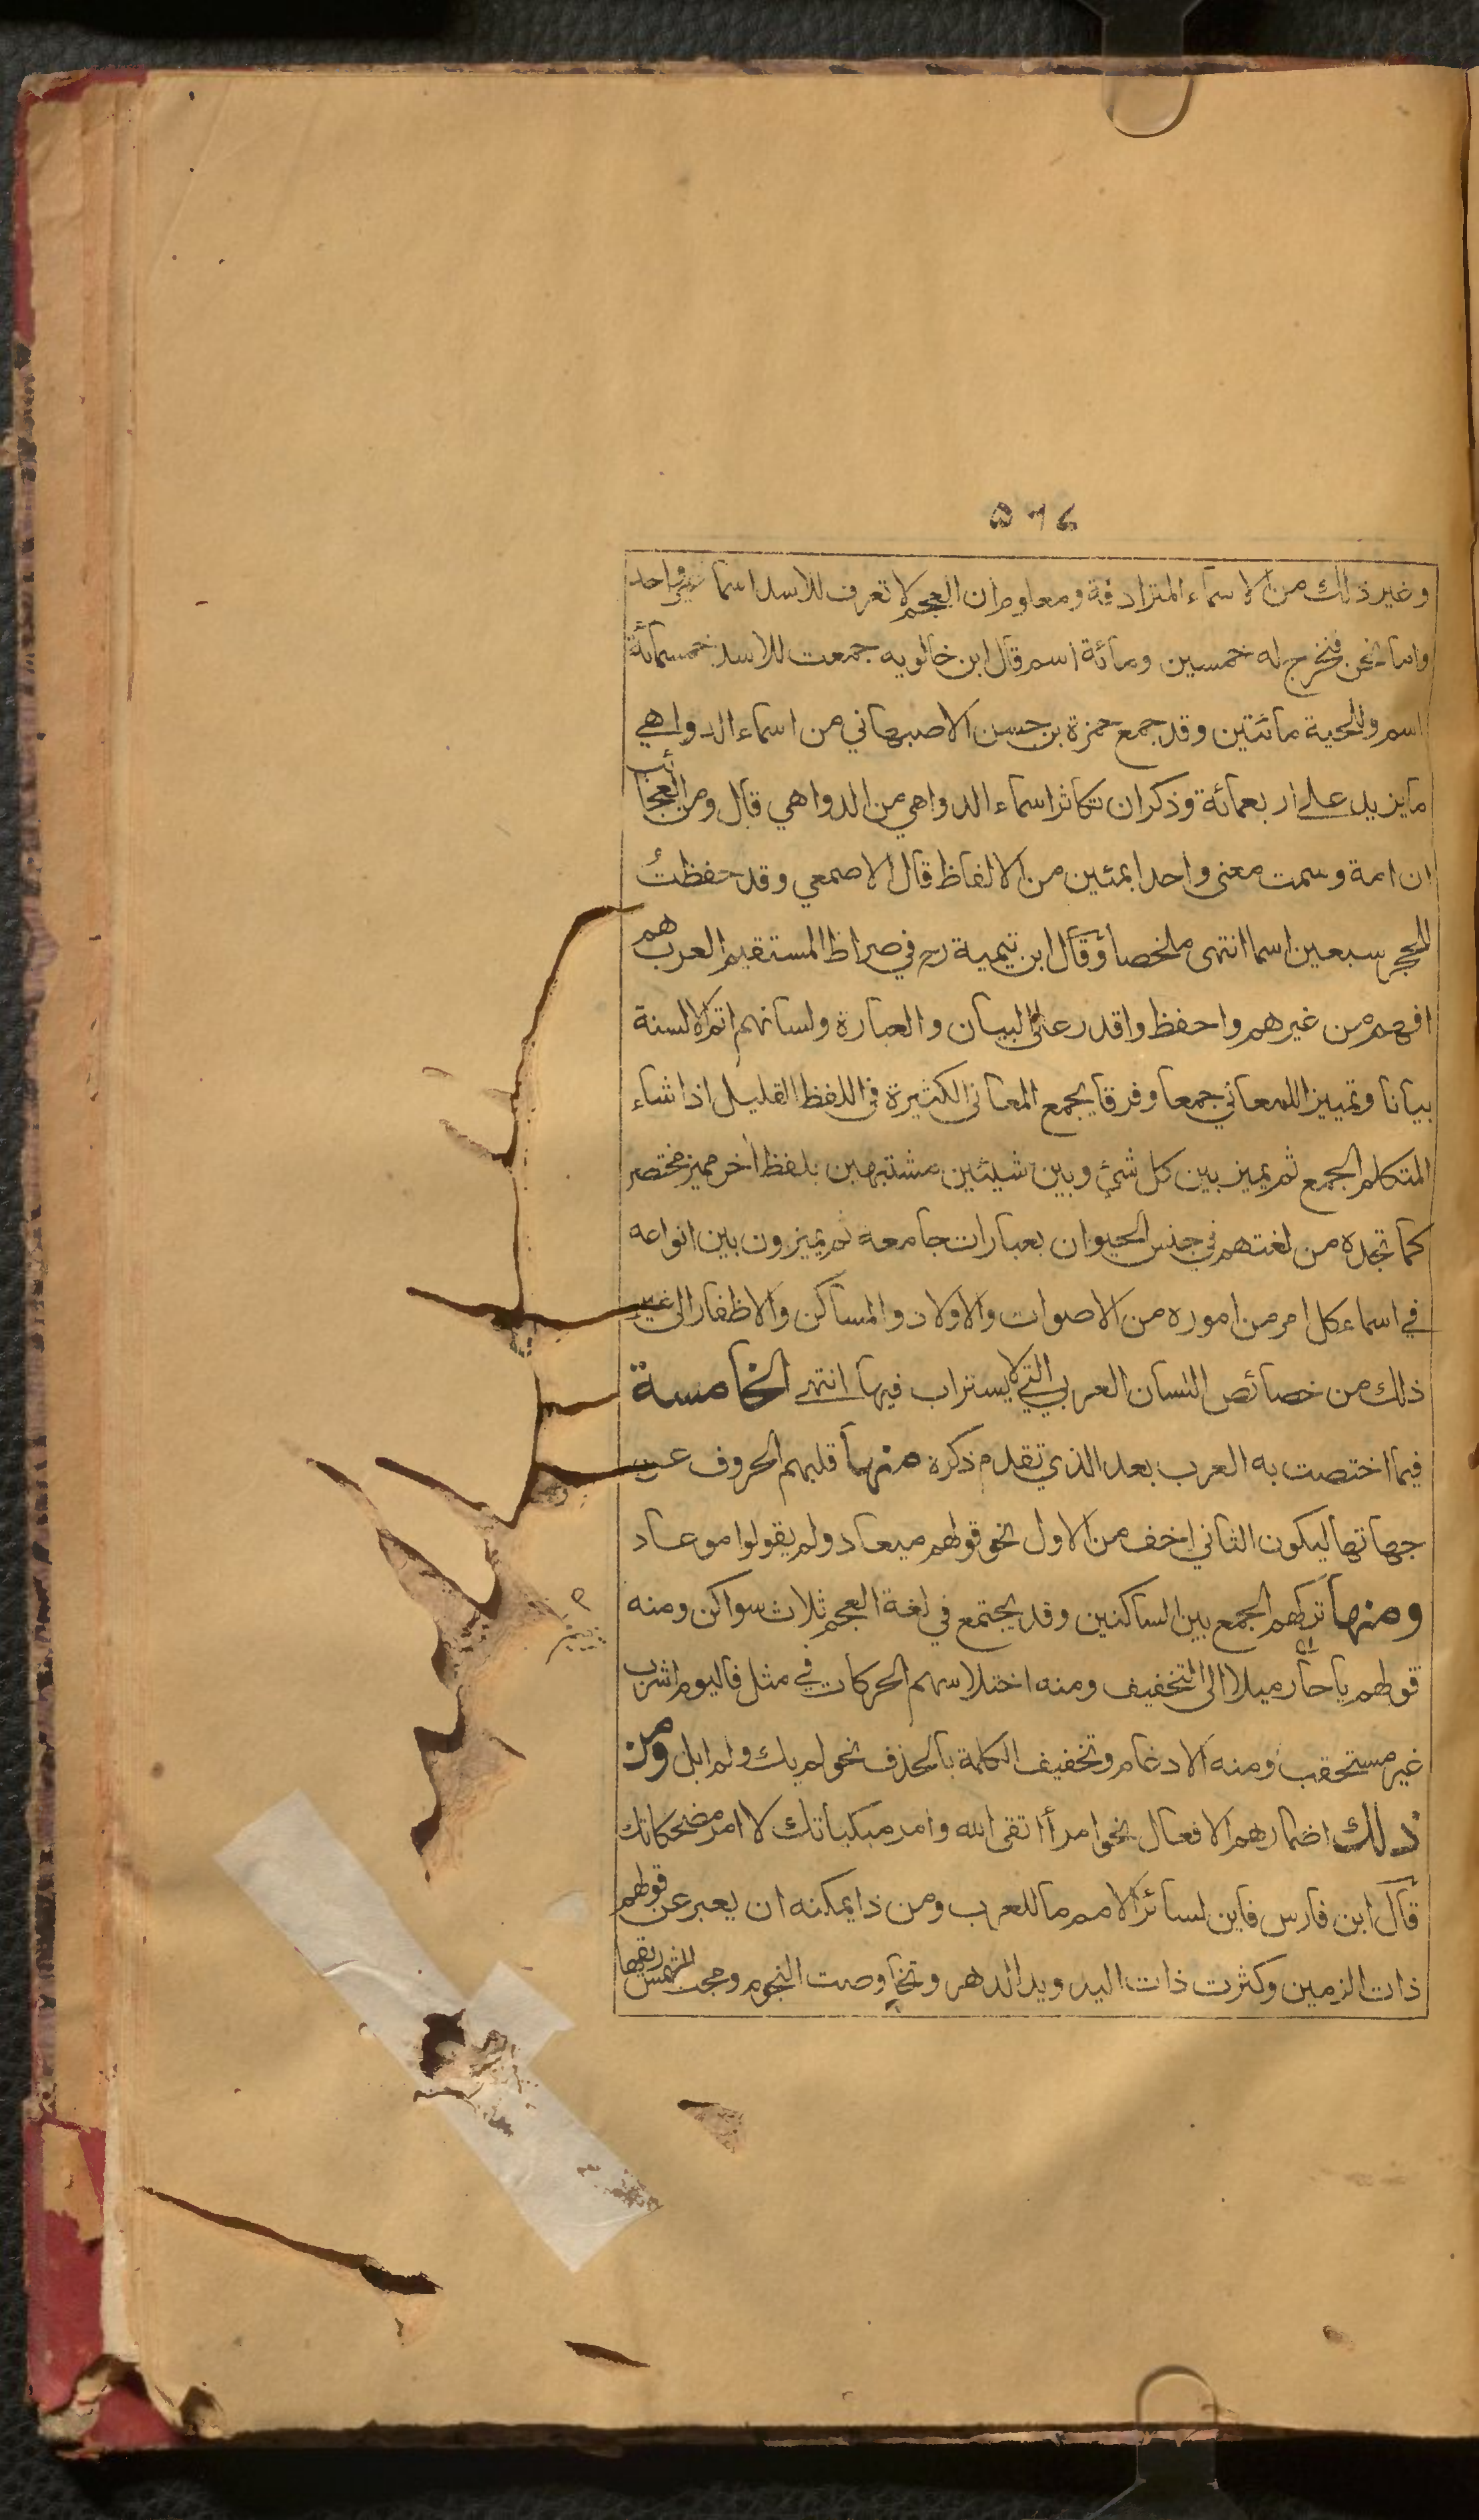 ۵۶۴
وغير ذلك من الاسماء المترادفة ومعلوم ان العجم لا تعرف للاسد اسما غير واحد
واما نحن فنخرج له خمسين ومائة اسم قال ابن خالويه جمعت للاسد خمسمائة
اسم وللحية مائتين وقد جمع حمزة بن حسن الاصبهاني من اسماء الدواهي
ما يزيد على اربعمائة وذكر ان تكاثر اسماء الدواهي من الدواهي قال ومن العجائب
ان امة وسمت معنى واحدا بمئين من الالفاظ قال الاصمعي وقد حفظتُ
للحجر سبعين اسما انتهى ملخصا وقال ابن تيمية رح في صراط المستقيم العرب هم
افهم من غيرهم واحفظ واقدر على البيان والعبارة ولسانهم اتم الالسنة
بيانا وتمييزا للمعاني جمعا وفرقا يجمع المعاني الكثيرة في اللفظ القليل اذا شاء
المتكلم الجمع ثم يميز بين كل شئ وبين شيئين مشتبهين بلفظ اخر مميز مختصر
كما تجده من لغتهم في جنس الحيوان بعبارات جامعة ثم يميزون بين انواعه
في اسماء كل امر من اموره من الاصوات والاولاد والمساكن والاظفار الى غير
ذلك من خصائص اللسان العربي التي لا يستراب فيها انتهى الخامسة
فيما اختصت به العرب بعد الذي تقدم ذكره منها قلبهم الحروف عن
جهاتها ليكون الثاني اخف من الاول نحو قولهم ميعاد ولم يقولوا موعاد
ومنها تركهم الجمع بين الساكنين وقد يجتمع في لغة العجم ثلاث سواكن ومنه
قولهم يا حار ميلا الى التخفيف ومنه اختلاسهم الحركات في مثل فاليوم اشرب
غير مستحقب ومنه الادغام وتخفيف الكلمة بالحذف نحو لم يك ولم ابل ومن
ذلك اضمارهم الافعال نحو امرأ اتقى الله وامر مبكياتك لا امر مضحكاتك
قال ابن فارس فاين لسائر الامم ما للعرب ومن ذا يمكنه ان يعبر عن قولهم
ذات الزمين وكثرت ذات اليد ويد الدهر وتخاوصت النجوم ومجت الشمس ريقها